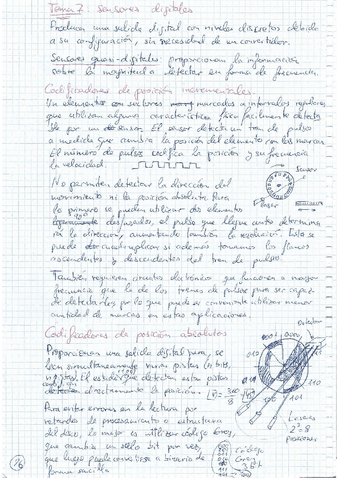 Tema 7: Sensores digitales
Producen una salida digital con niveles discretos debida
a su configuración, sin necesidad de un convertidor.
Sensores quasi-digitales proporcionan la información
sobre la magnitud a detectar en forma de frecuencia.
Codificadores de posición incrementales.
Un elemento con sectores marcados a intervalos regulares
que utilizan alguna característica física fácilmente detecta
ble por un sensor. El sensor detecta un tren de pulso
a medida que cambia la posición del elemento con las marcas.
El número de pulsos codifica la posición y su frecuencia
la velocidad.
sensor
No permiten detectar la dirección del
movimiento ni la posición absoluta. Para
lo primero se pueden utilizar dos elementos
desfasados, el pulso que llegue antes determina
rá la dirección, aumentando también la resolución. Esta se
puede cuadruplicar si además tomamos los flancos
ascendentes y descendentes del tren de pulso.
También requieren circuitos electrónicos que funcionen a mayor
frecuencia que la de los trenes de pulsos para ser capaz
de detectarlos por lo que puede ser conveniente utilizar menor
cantidad de marcas en estas aplicaciones.
Codificadores de posición absolutos
Proporcionan una salida digital pura, se
leen simultáneamente varias pistas (n bits,
n pistas). El estado que detectan estas pistas
directamente la posición.
Para evitar errores en la lectura por
retardos de procesamiento o estructura
del disco, lo mejor es utilizar código Grey,
que cambia un sólo bit por vez,
que luego puede convertirse a binario de
forma sencilla
000
001
011
010
110
111
101
Código
Grey
3 bit
2³=8
posiciones
26